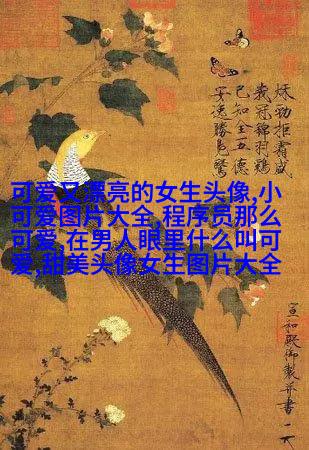 秋勁拒霜盛
峩冠錦羽鷄
已知全五德
安逸勝鳧鷖
可爱又漂亮的女生头像,小
可爱图片大全,程序员那么
可爱,在男人眼里什么叫可
爱,甜美头像女生图片大全
宣和殿御製并書